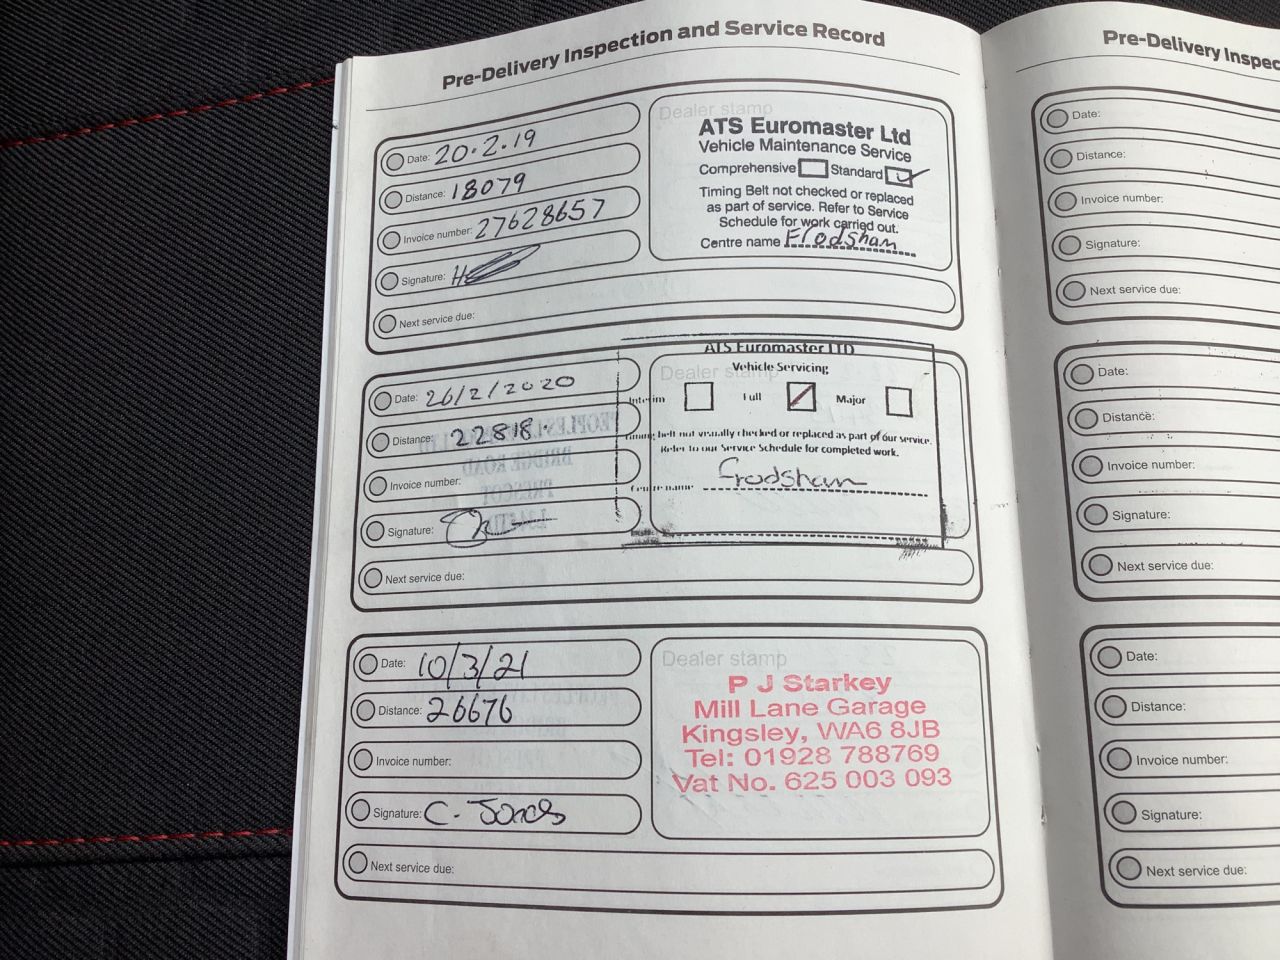 Pre-Delivery Inspection and Service Record
Date: 20.2.19
Distance: 18079
Invoice number: 27628657
Signature:
Next service due:
Dealer stamp
ATS Euromaster Ltd
Vehicle Maintenance Service
Comprehensive Standard
Timing Belt not checked or replaced
as part of service. Refer to Service
Schedule for work carried out.
Centre name Frodsham
Date: 26/2/2020
Distance: 22818.
Invoice number:
Signature:
Next service due:
Dealer stamp
ATS Euromaster LTD
Vehicle Servicing
Interim Full Major
Timing belt not visually checked or replaced as part of our service.
Refer to our Service Schedule for completed work.
Centre name Frodsham
Date: 10/3/21
Distance: 26676
Invoice number:
Signature: C. Jones
Next service due:
Dealer stamp
P J Starkey
Mill Lane Garage
Kingsley, WA6 8JB
Tel: 01928 788769
Vat No. 625 003 093
Pre-Delivery Inspec
Date:
Distance:
Invoice number:
Signature:
Next service due:
Date:
Distance:
Invoice number:
Signature:
Next service due:
Date:
Distance:
Invoice number:
Signature:
Next service due: